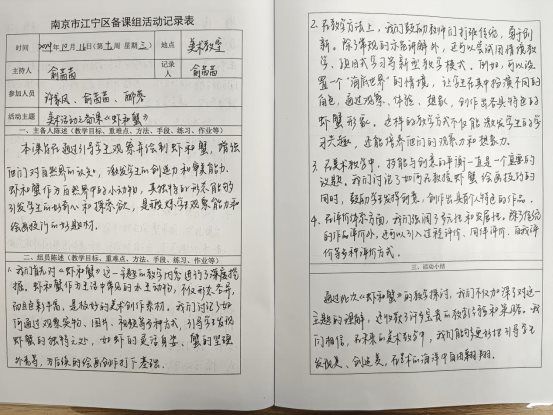 南京市江宁区备课组活动记录表
时间 2024年12月16日(第十周 星期三) 地点 美术教室
主持人 俞菡菡 记录人 俞菡菡
参加人员 许春凤、俞菡菡、郦蓉
活动主题 美术活动之备课《虾和蟹》
一、主备人陈述(教学目标、重难点、方法、手段、练习、作业等)
本课旨在通过引导学生观察并绘制虾和蟹,增强
他们对自然界的认知,激发学生的创造力和审美能力。
虾和蟹作为自然界中的小动物,其独特的形态能够
引发学生的好奇心和探索欲,是锻炼学生观察能力和
绘画技巧的好题材。
二、组员陈述(教学目标、重难点、方法、手段、练习、作业等)
1. 我们首先对《虾和蟹》这一主题的教学内容进行了深度挖
掘。虾和蟹作为生活中常见的水生动物,不仅形态各异,
而且色彩丰富,是极好的美术创作素材。我们讨论了如
何通过观察实物、图片、视频等多种方式,引导学生发现
虾蟹的独特之处,如虾的灵活身姿、蟹的坚硬
外壳等,为后续的绘画创作打下基础。
2. 在教学方法上,我们鼓励教师们打破传统,勇于创
新。除了常规的示范讲解外,还可以尝试用情境教
学、小组式学习等新型教学模式。例如,可以设
置一个“海底世界”的情境,让学生在其中扮演不同的
角色,通过观察、体验、想象,创作出各具特色的
虾蟹形象。这样的教学方式不仅能激发学生的学
习兴趣,还能培养他们的观察力和想象力。
3. 在美术教学中,技能与创意的平衡一直是个重要的
议题。我们讨论了如何在教授虾蟹绘画技巧的
同时,鼓励学生发挥创意,创作出具有个人特色的作品。
4. 在评价体系方面,我们强调了多元性和发展性。除了传统
的作品评价外,还可以引入过程评价、同伴评价、自我评
价等多种评价方式。
三、活动小结
通过此次《虾和蟹》的教学探讨,我们不仅加深了对这一
主题的理解,还收获了许多宝贵的教学经验和策略。我
们相信,在未来的美术教学中,我们能够更好地引导学生
发现美、创造美,在艺术的海洋中自由翱翔。